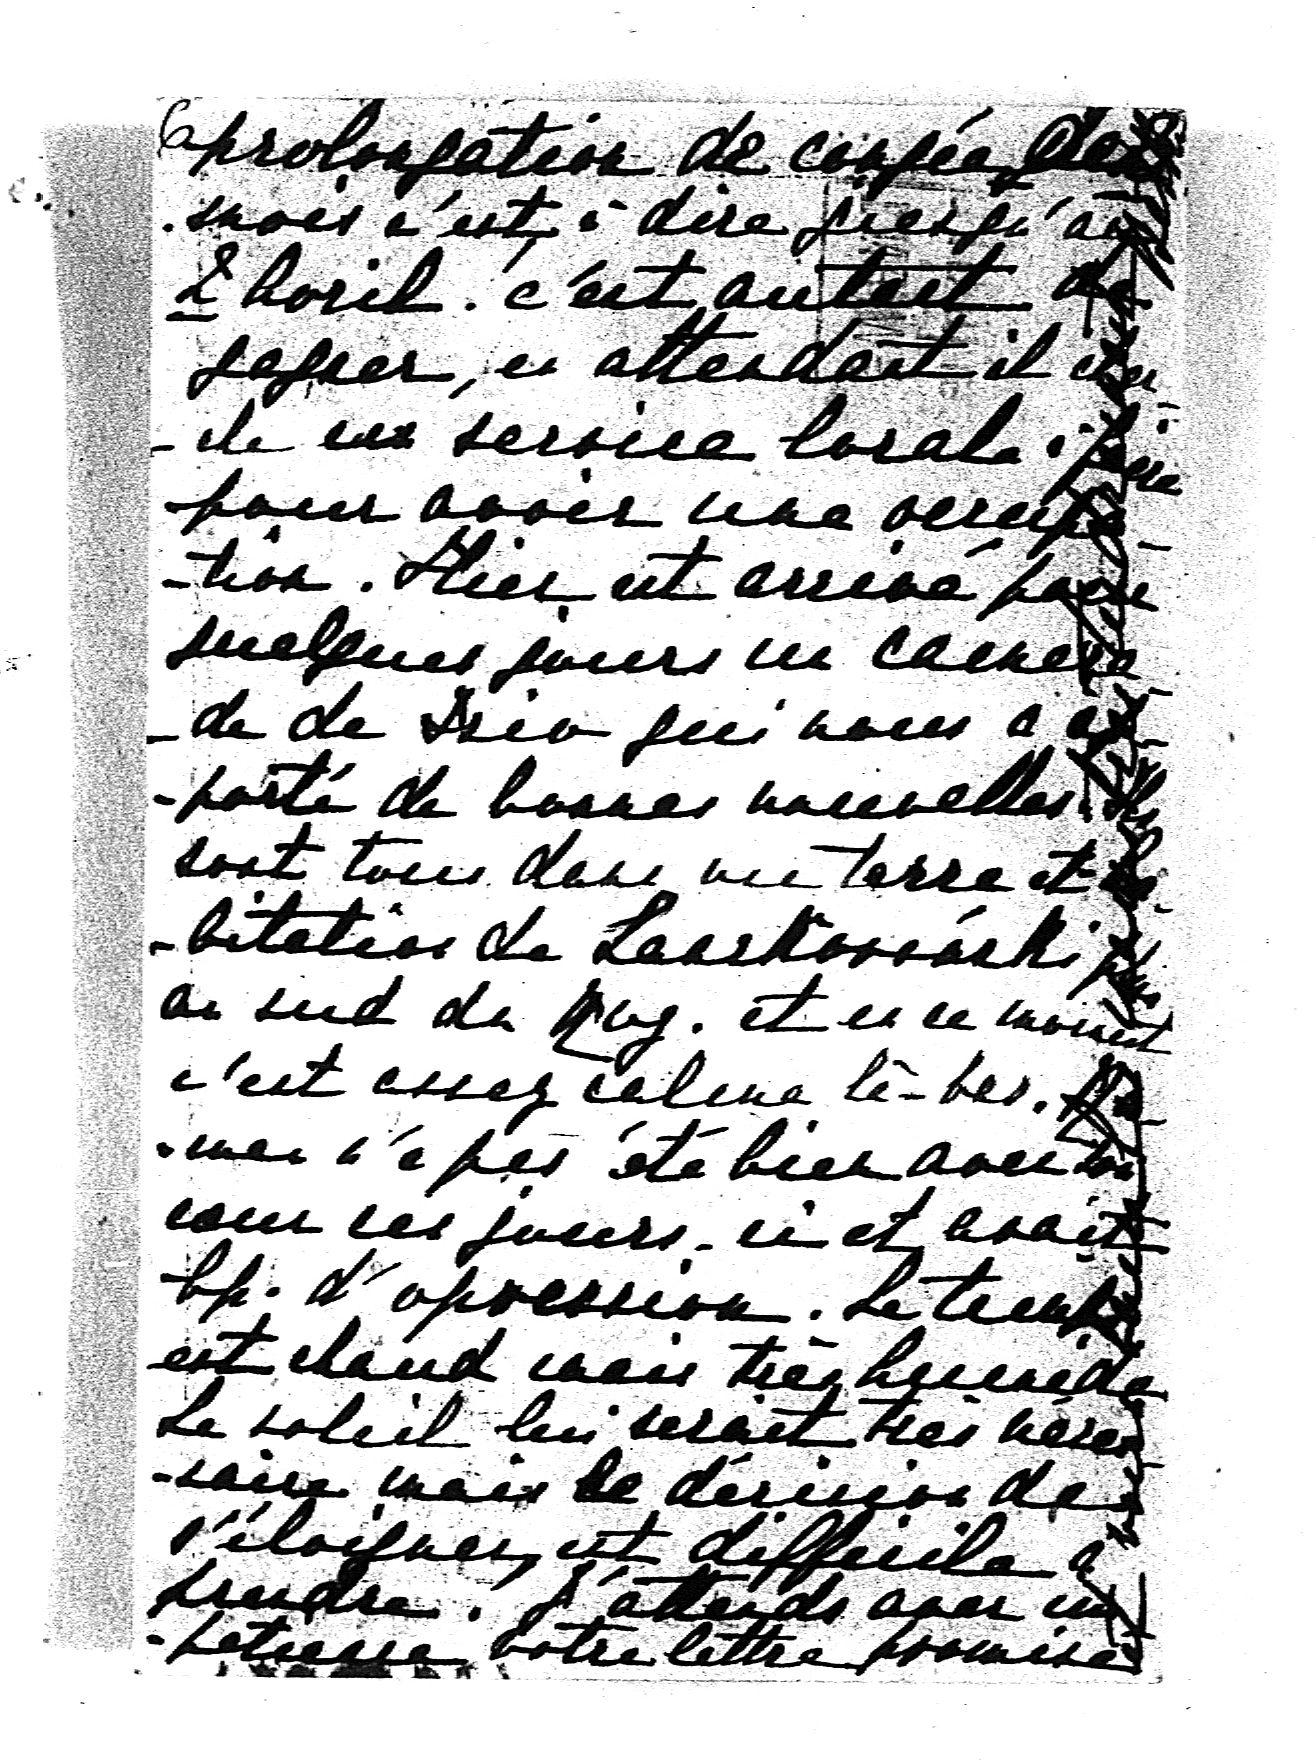 6
prolongation de congé, de 2
mois c'est à dire jusqu'au
2 Avril. c'est autant de
gagner, en attendant il
-de un service locale à faire
pour avoir une occupa
-tion. Hier est arrivé pour
quelques jours un camara
-de de qui nous a ap
-porté de bonnes nouvelles. Ils
sont tous dans une terre et ha
-bitation de plus
au sud du et en ce moment
c'est assez calme là-bas. Ma
-man n'a pas été bien avec son
cœur ces jours-ci et avait
bp. d'opression. Le temps
est chaud mais très humide
Le soleil lui serait très néces
-saire mais la décision de
s'éloigner est difficile a
prendre. J'attends avec im
-patience votre lettre promise